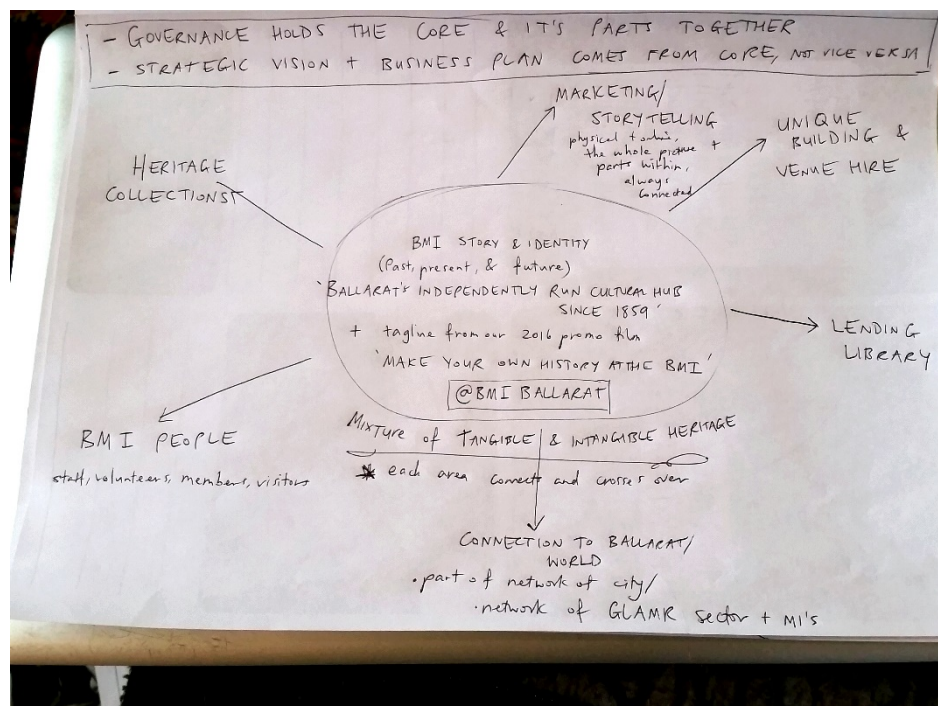 - GOVERNANCE HOLDS THE CORE & IT'S PARTS TOGETHER
- STRATEGIC VISION + BUSINESS PLAN COMES FROM CORE, NOT VICE VERSA
MARKETING/
STORYTELLING
physical + online,
the whole picture +
parts within,
always
connected
UNIQUE
BUILDING &
VENUE HIRE
HERITAGE
COLLECTIONS
BMI STORY & IDENTITY
(Past, present, & future)
'BALLARAT'S INDEPENDENTLY RUN CULTURAL HUB
SINCE 1859'
+ tagline from our 2016 promo film
'MAKE YOUR OWN HISTORY AT THE BMI'
@BMI BALLARAT
LENDING
LIBRARY
BMI PEOPLE
staff, volunteers, members, visitors
MIXTURE of TANGIBLE & INTANGIBLE HERITAGE
* each area connects and crosses over
CONNECTION TO BALLARAT/
WORLD
• part of network of city/
• network of GLAMR sector + MI's